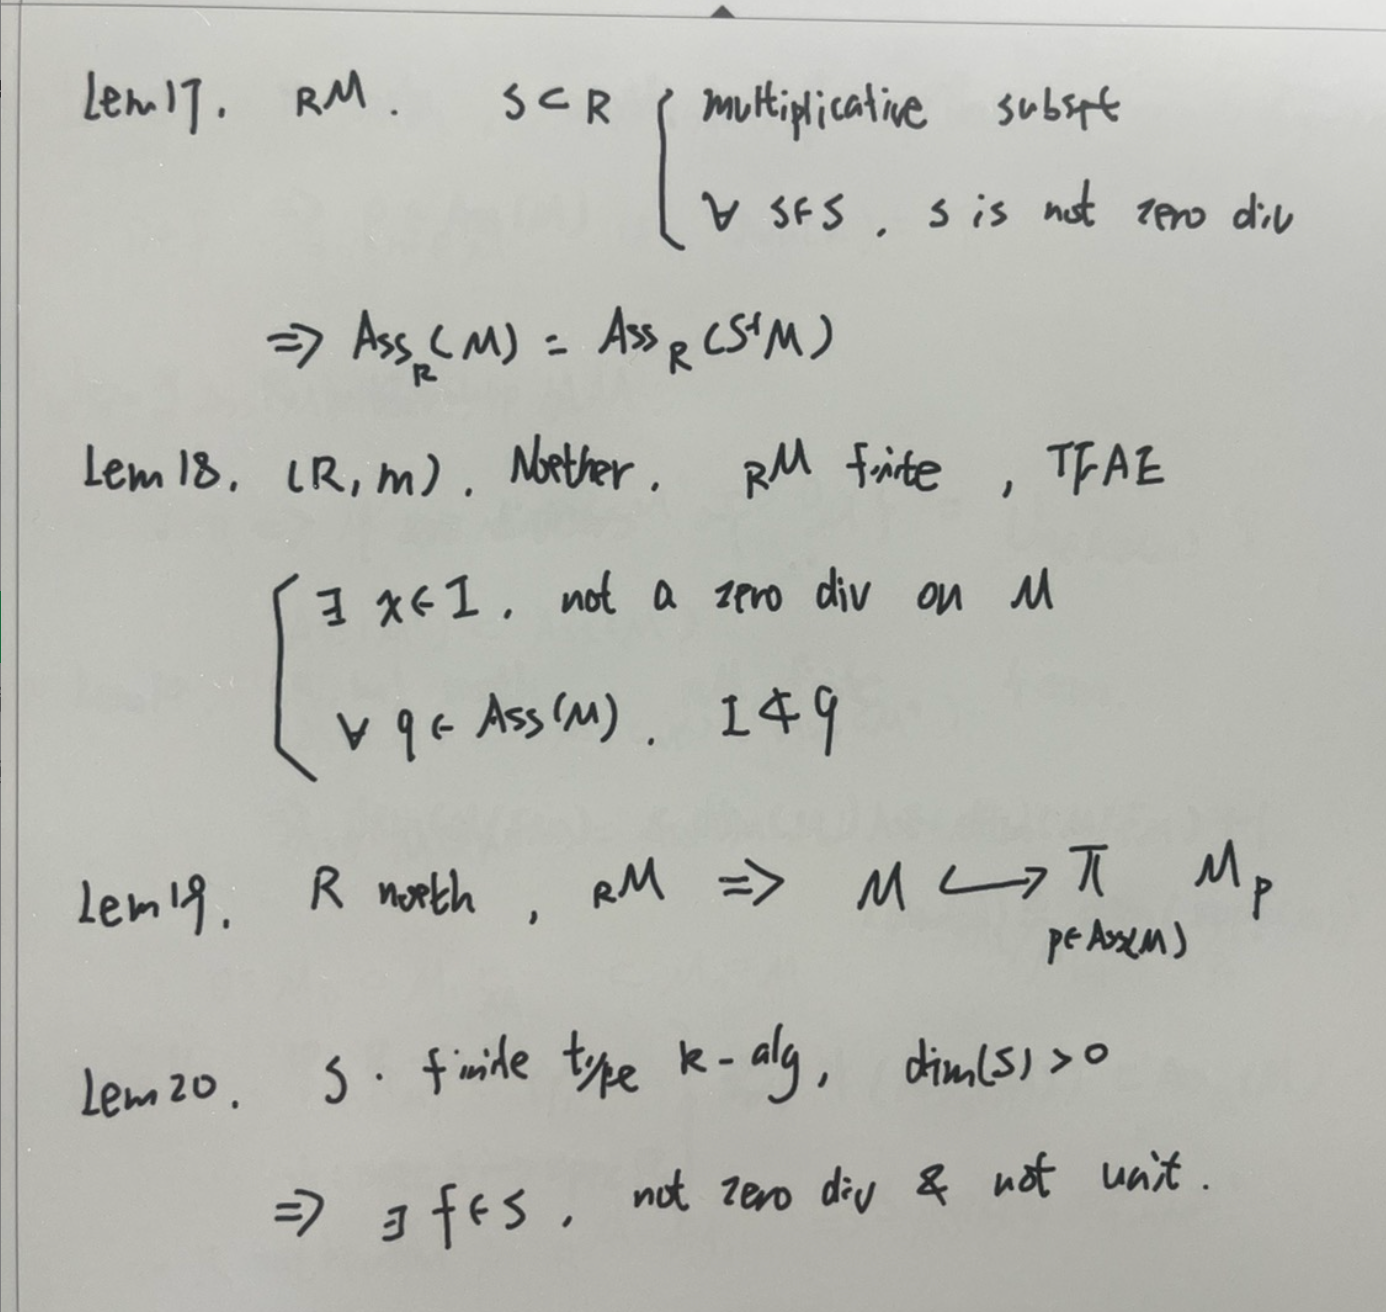 Lem 17. RM. S ⊂ R { multiplicative subset
∀ s∈S, s is not zero div
⇒ Ass_R(M) = Ass_R(S⁻¹M)
Lem 18. (R, m). Noether. RM finite, TFAE
∃ x∈I. not a zero div on M
∀ q∈ Ass(M). I ⊄ q
Lem 19. R noeth, RM ⇒ M ↪ π M_p
p∈Ass(M)
Lem 20. S. finite type k-alg, dim(S) > 0
⇒ ∃ f∈S, not zero div & not unit.